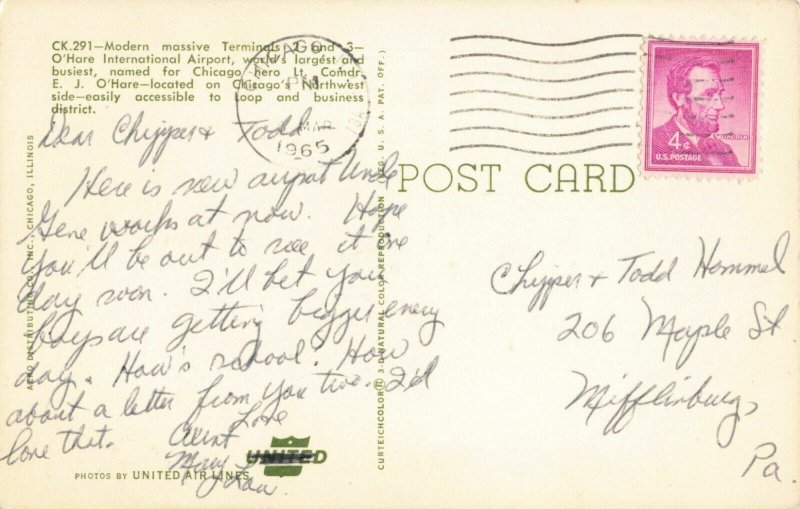 CK.291—Modern massive Terminals 2 and 3—
O'Hare International Airport, world's largest and
busiest, named for Chicago hero Lt. Comdr.
E. J. O'Hare—located on Chicago's Northwest
side—easily accessible to Loop and business
district.
CHICAGO
PM
MAR
1965
LINCOLN
4¢
U.S. POSTAGE
POST CARD
Dear Chipper & Todd
Here is new airport Uncle
Gene works at now. Hope
you'll be out to see it one
day soon. I'll bet you
boys are getting bigger every
day. How's school? How
about a letter from you two. I'd
love that.
Love
Aunt
Mary Lou
Chipper & Todd Hommel
206 Maple St
Mifflinburg,
Pa.
UNITED
PHOTOS BY UNITED AIR LINES
AERO DISTRIBUTING CO., INC., CHICAGO, ILLINOIS
CURTEICHCOLOR® 3-D NATURAL COLOR REPRODUCTION (REG. U. S. A. PAT. OFF.)